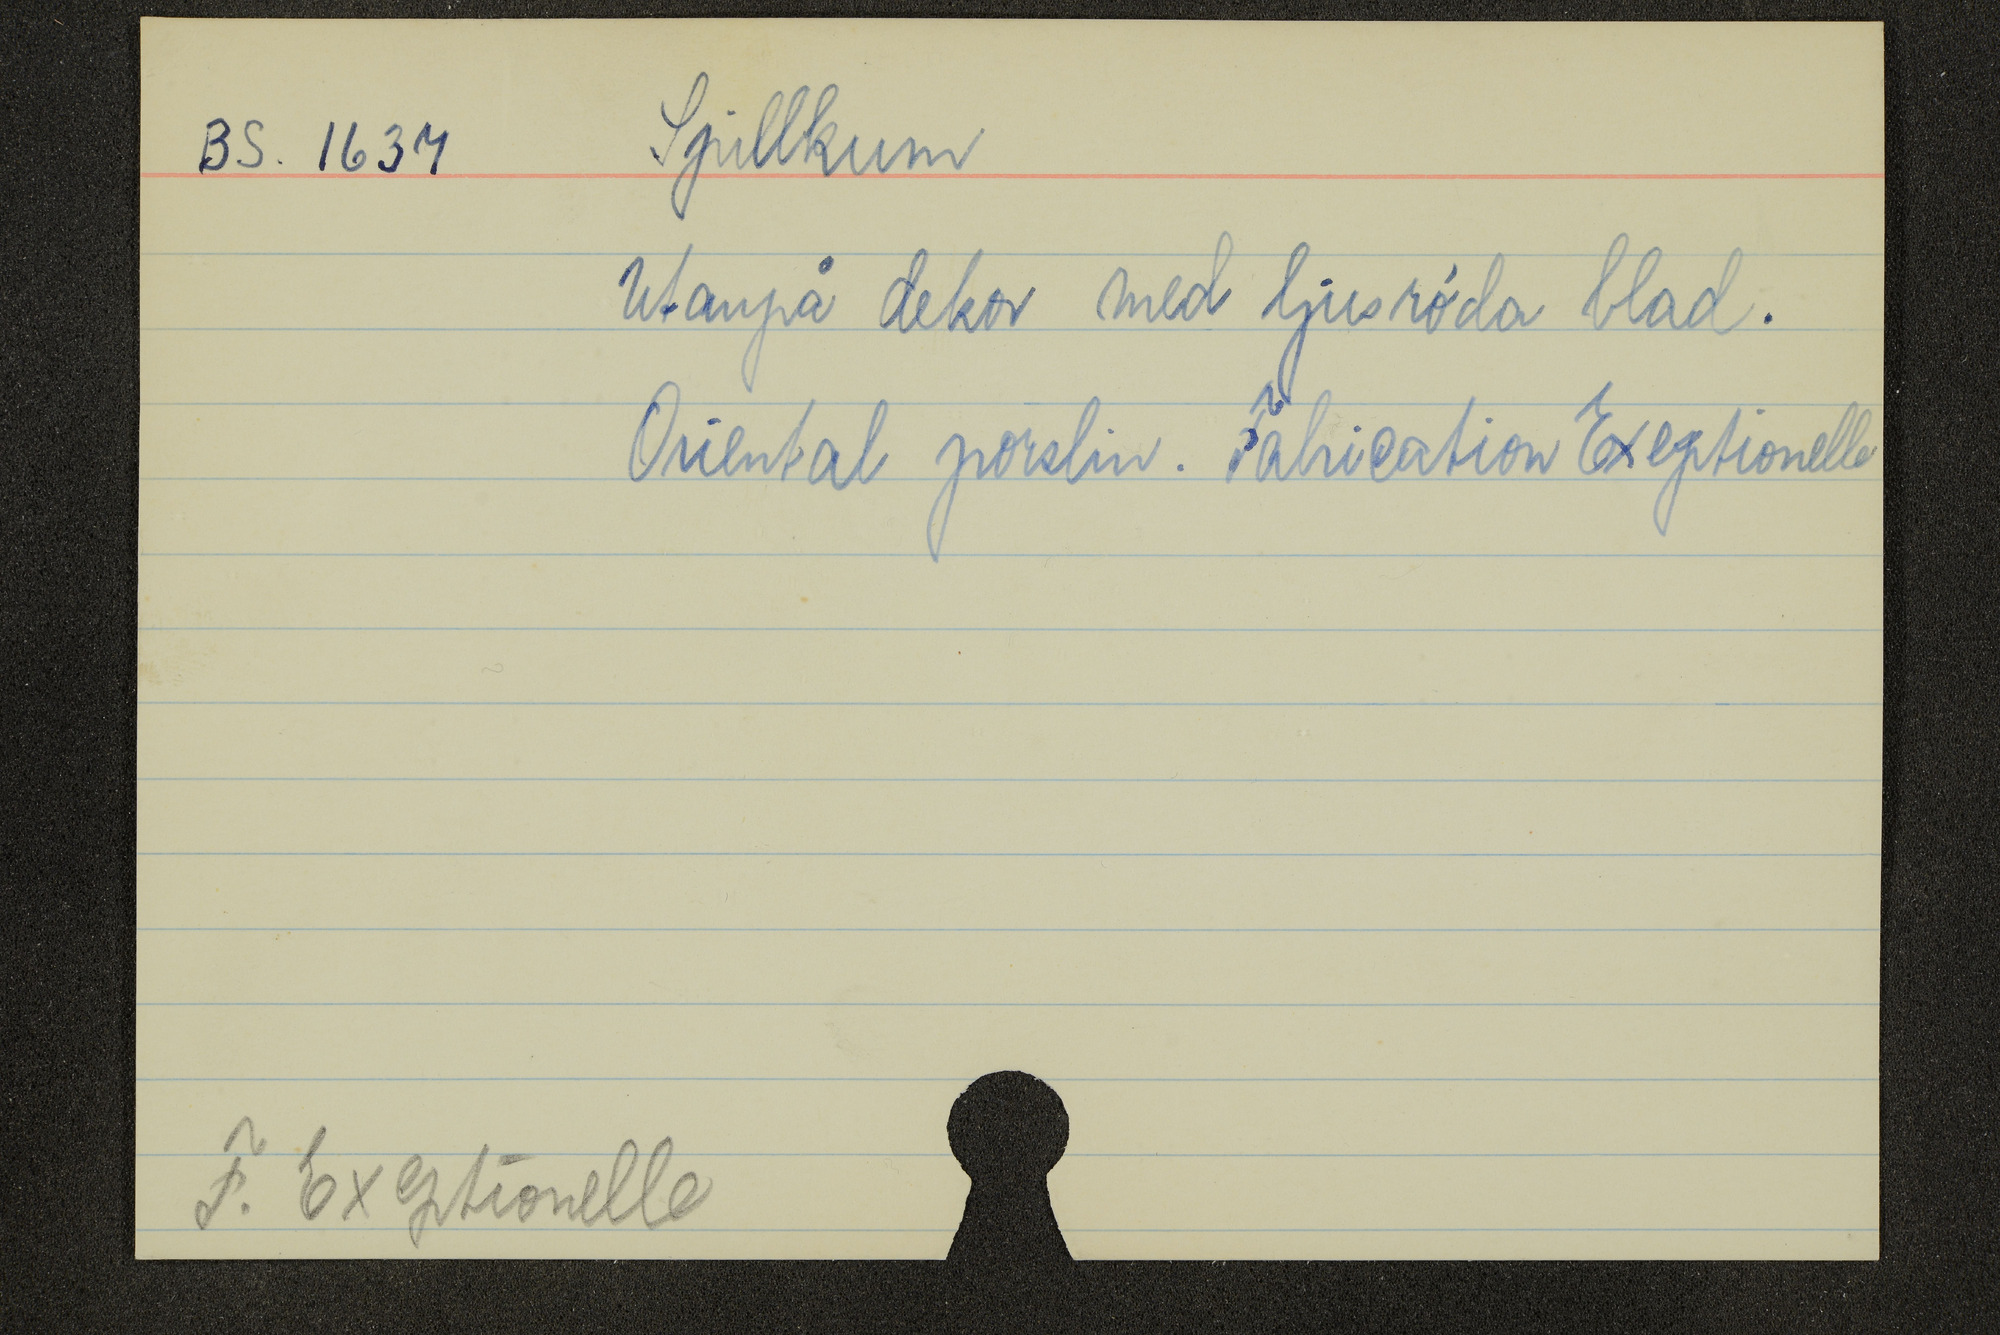 BS. 1637 Spillkum
Utanpå dekor med ljusröda blad.
Oriental porslin. Fabrication Exeptionelle
F. Exeptionelle